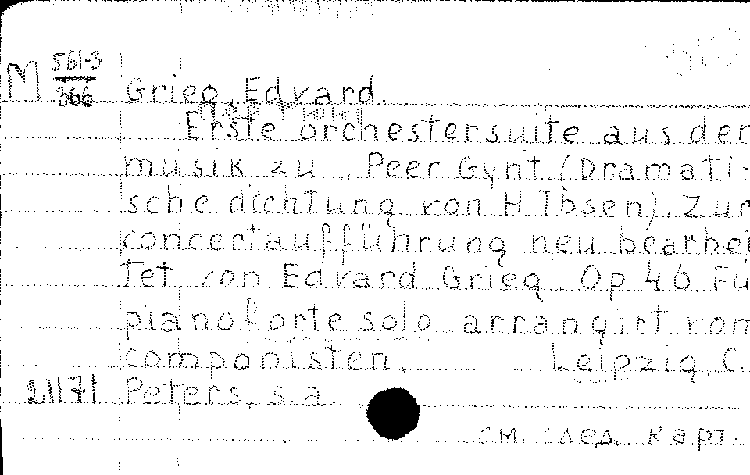 М 561-3
366
Grieg, Edvard.
Erste orchestersuite aus der
musik zu „Peer Gynt" (Dramati-
sche dichtung von H. Ibsen). Zur
concertaufführung neu bearbei
tet von Edvard Grieg. Op 46 Fü
pianoforte solo arrangirt vom
componisten. Leipzig, C.
21171 Peters, s.a.
см. след. карт.